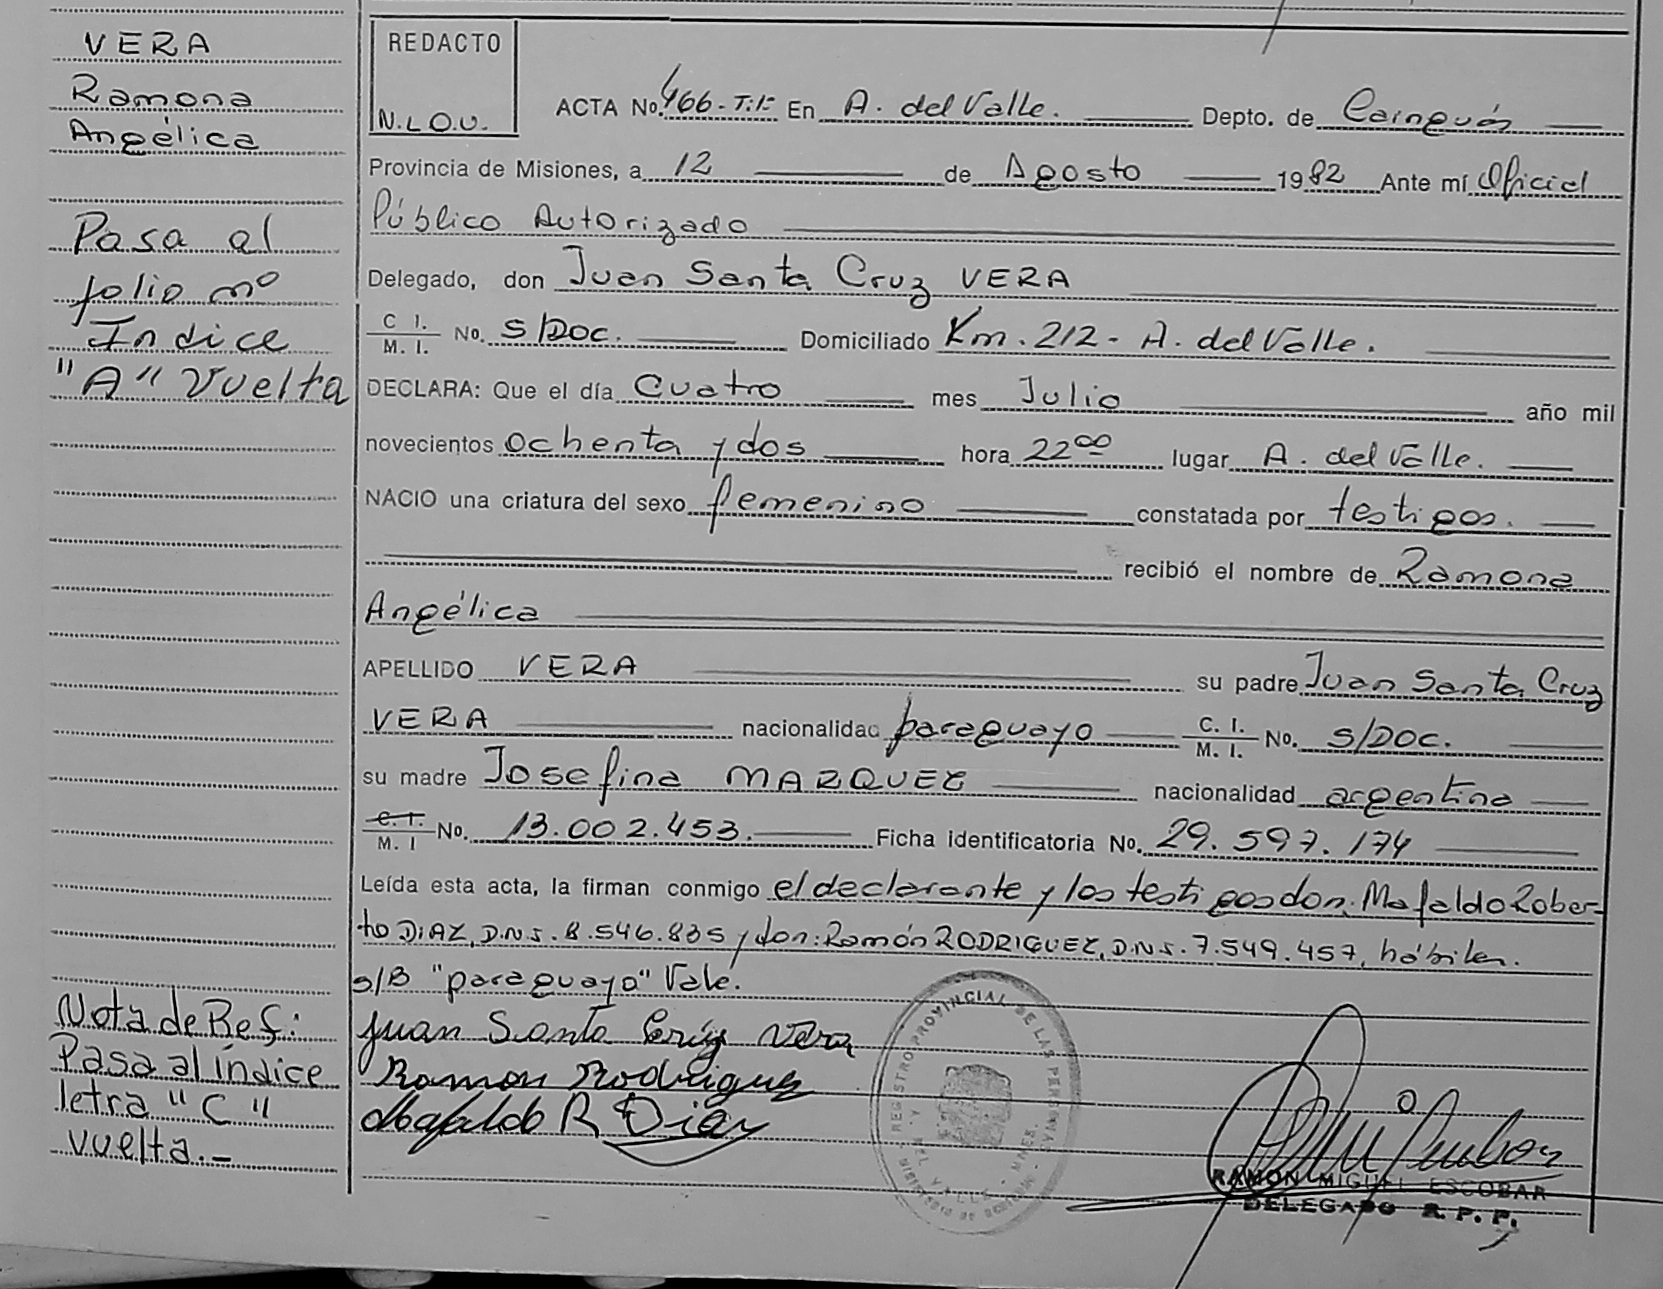 VERA
Ramona
Angélica
Pasa al
folio nº
Indice
"A" Vuelta
Nota de Ref:
Pasa al índice
letra "C"
vuelta.-
REDACTO
N.L.O.U.
ACTA No. 466-T.1º En A. del Valle. Depto. de Cainguás
Provincia de Misiones, a 12 de Agosto 1982 Ante mí Oficial
Público Autorizado
Delegado, don Juan Santa Cruz VERA
C I. / M. I. No. S/DOC. Domiciliado Km. 212 - A. del Valle.
DECLARA: Que el día Cuatro mes Julio año mil
novecientos ochenta y dos hora 22 00 lugar A. del Valle.
NACIO una criatura del sexo femenino constatada por testigos.
recibió el nombre de Ramona
Angélica
APELLIDO VERA su padre Juan Santa Cruz
VERA nacionalidad paraguayo C. I. / M. I. No. S/DOC.
su madre Josefina MARQUEZ nacionalidad argentina
C. I. / M. I No. 13.002.453. Ficha identificatoria No. 29.597.174
Leída esta acta, la firman conmigo el declarante y los testigos don: Mafaldo Rober-
to DIAZ, D.N.I. 8.546.835 y don: Ramón RODRIGUEZ, D.N.I. 7.549.457, hábiles.
s/B "paraguayo" Vale.
Juan Santa Cruz Vera
Ramon Rodriguez
Mafaldo R Diaz
REGISTRO PROVINCIAL DE LAS PERSONAS
DEL VALLE - MNES.
RAMON MIGUEL ESCOBAR
DELEGADO R. P. P.